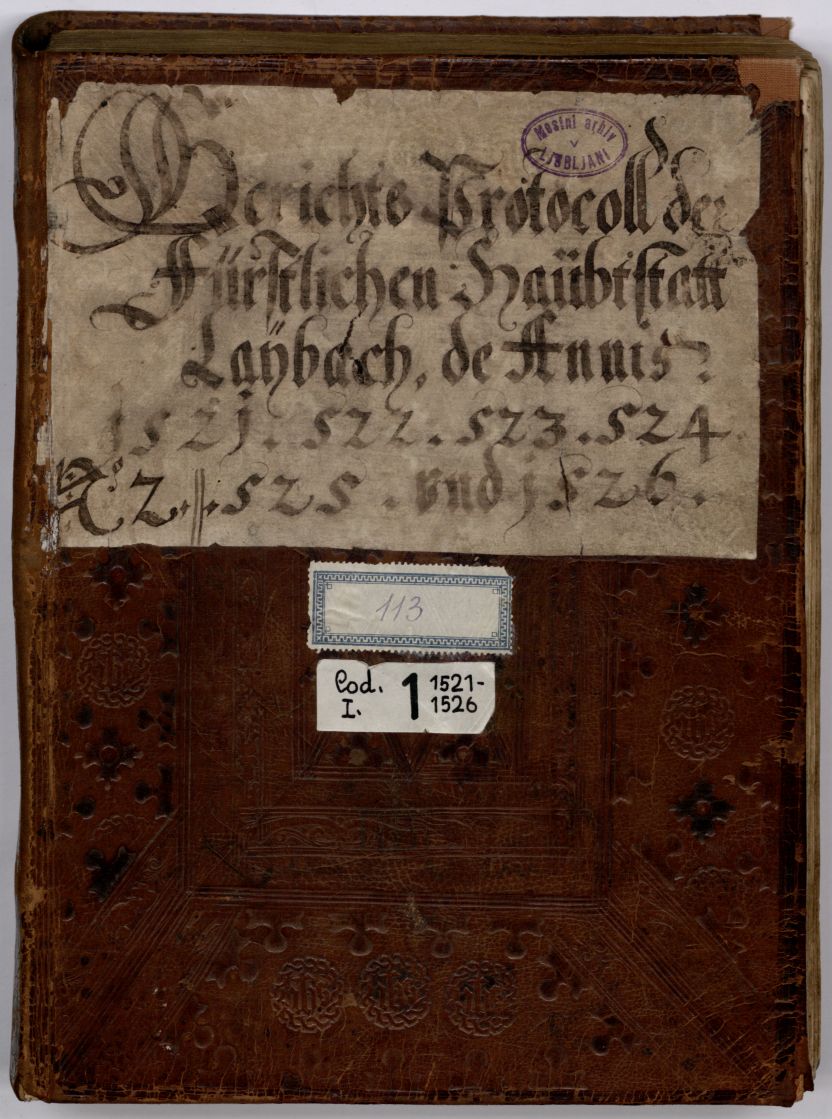 Mestni arhiv
v
LJUBLJANI
Gerichts Protocoll der
Fürstlichen Haübtstatt
Laÿbach, de Annis
1521. 522. 523. 524
No 2. 525. vnd 1526.
113
Cod. I. 1 1521-
1526